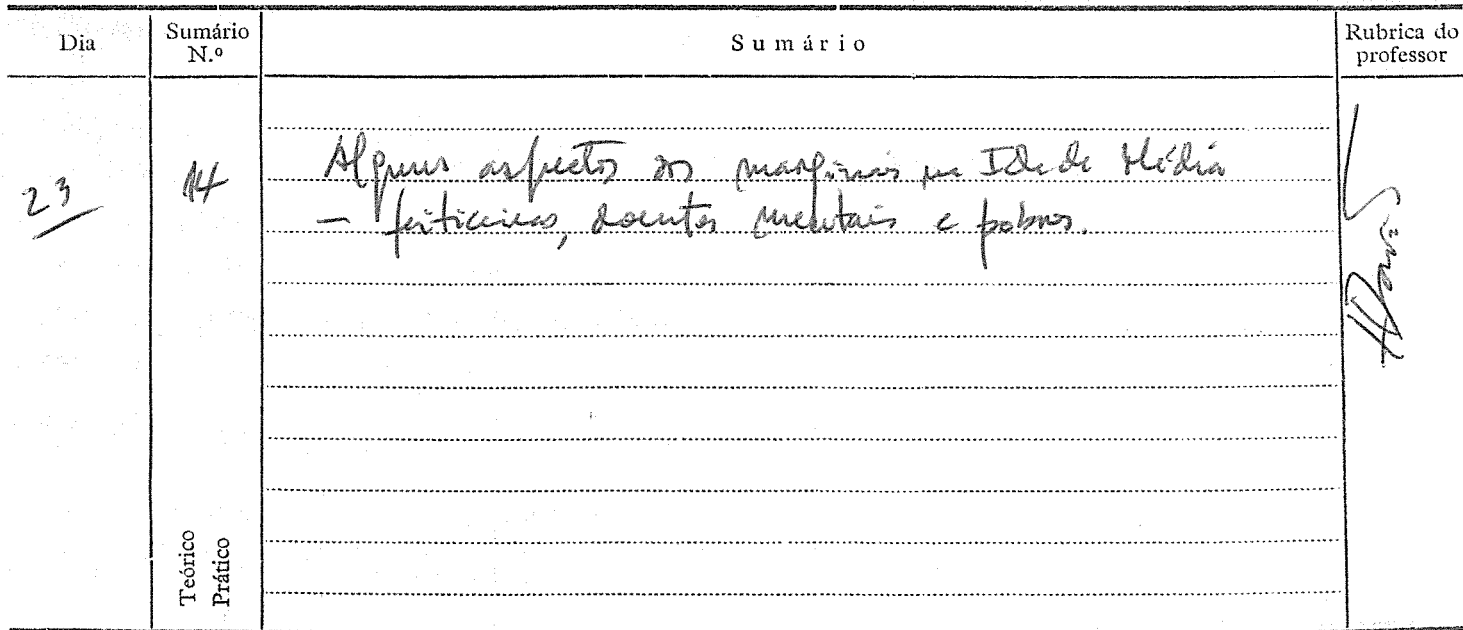 Dia
Sumário N.º
Sumário
Rubrica do professor
23
14
Alguns aspectos dos marginais na Idade Média
— feiticeiros, doentes mentais e pobres.
Teórico
Prático